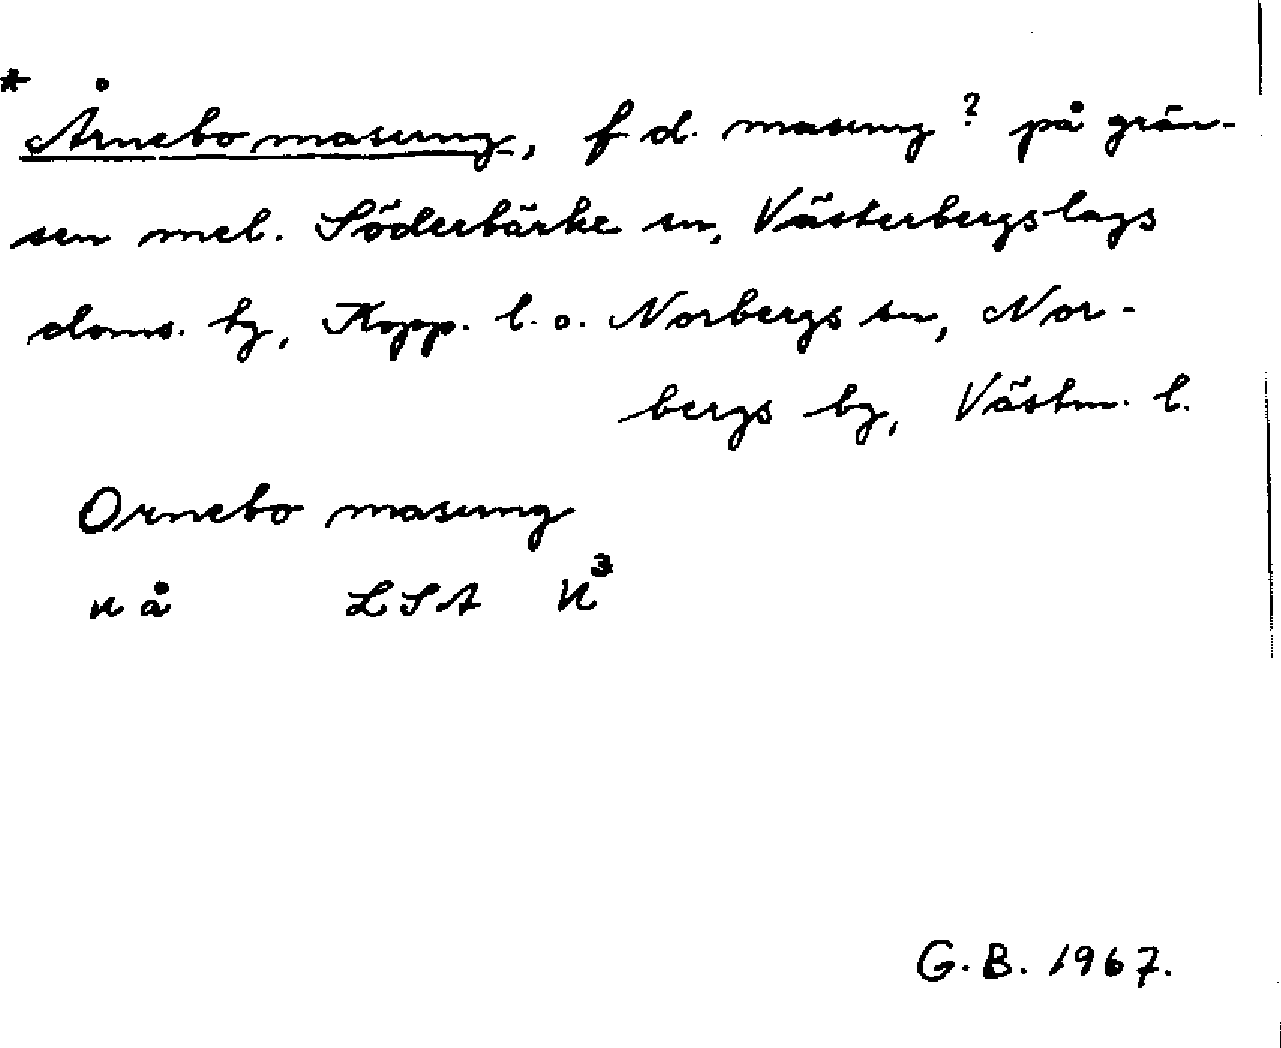 * Årnebo masung, f d. masung? på grän-
sen mel. Söderbärke sn, Västerbergslags
doms. hg, Kopp. l. o. Norbergs sn, Nor-
bergs hg, Västm. l.
Ornebo masung
u å LSA N³
G.B. 1967.